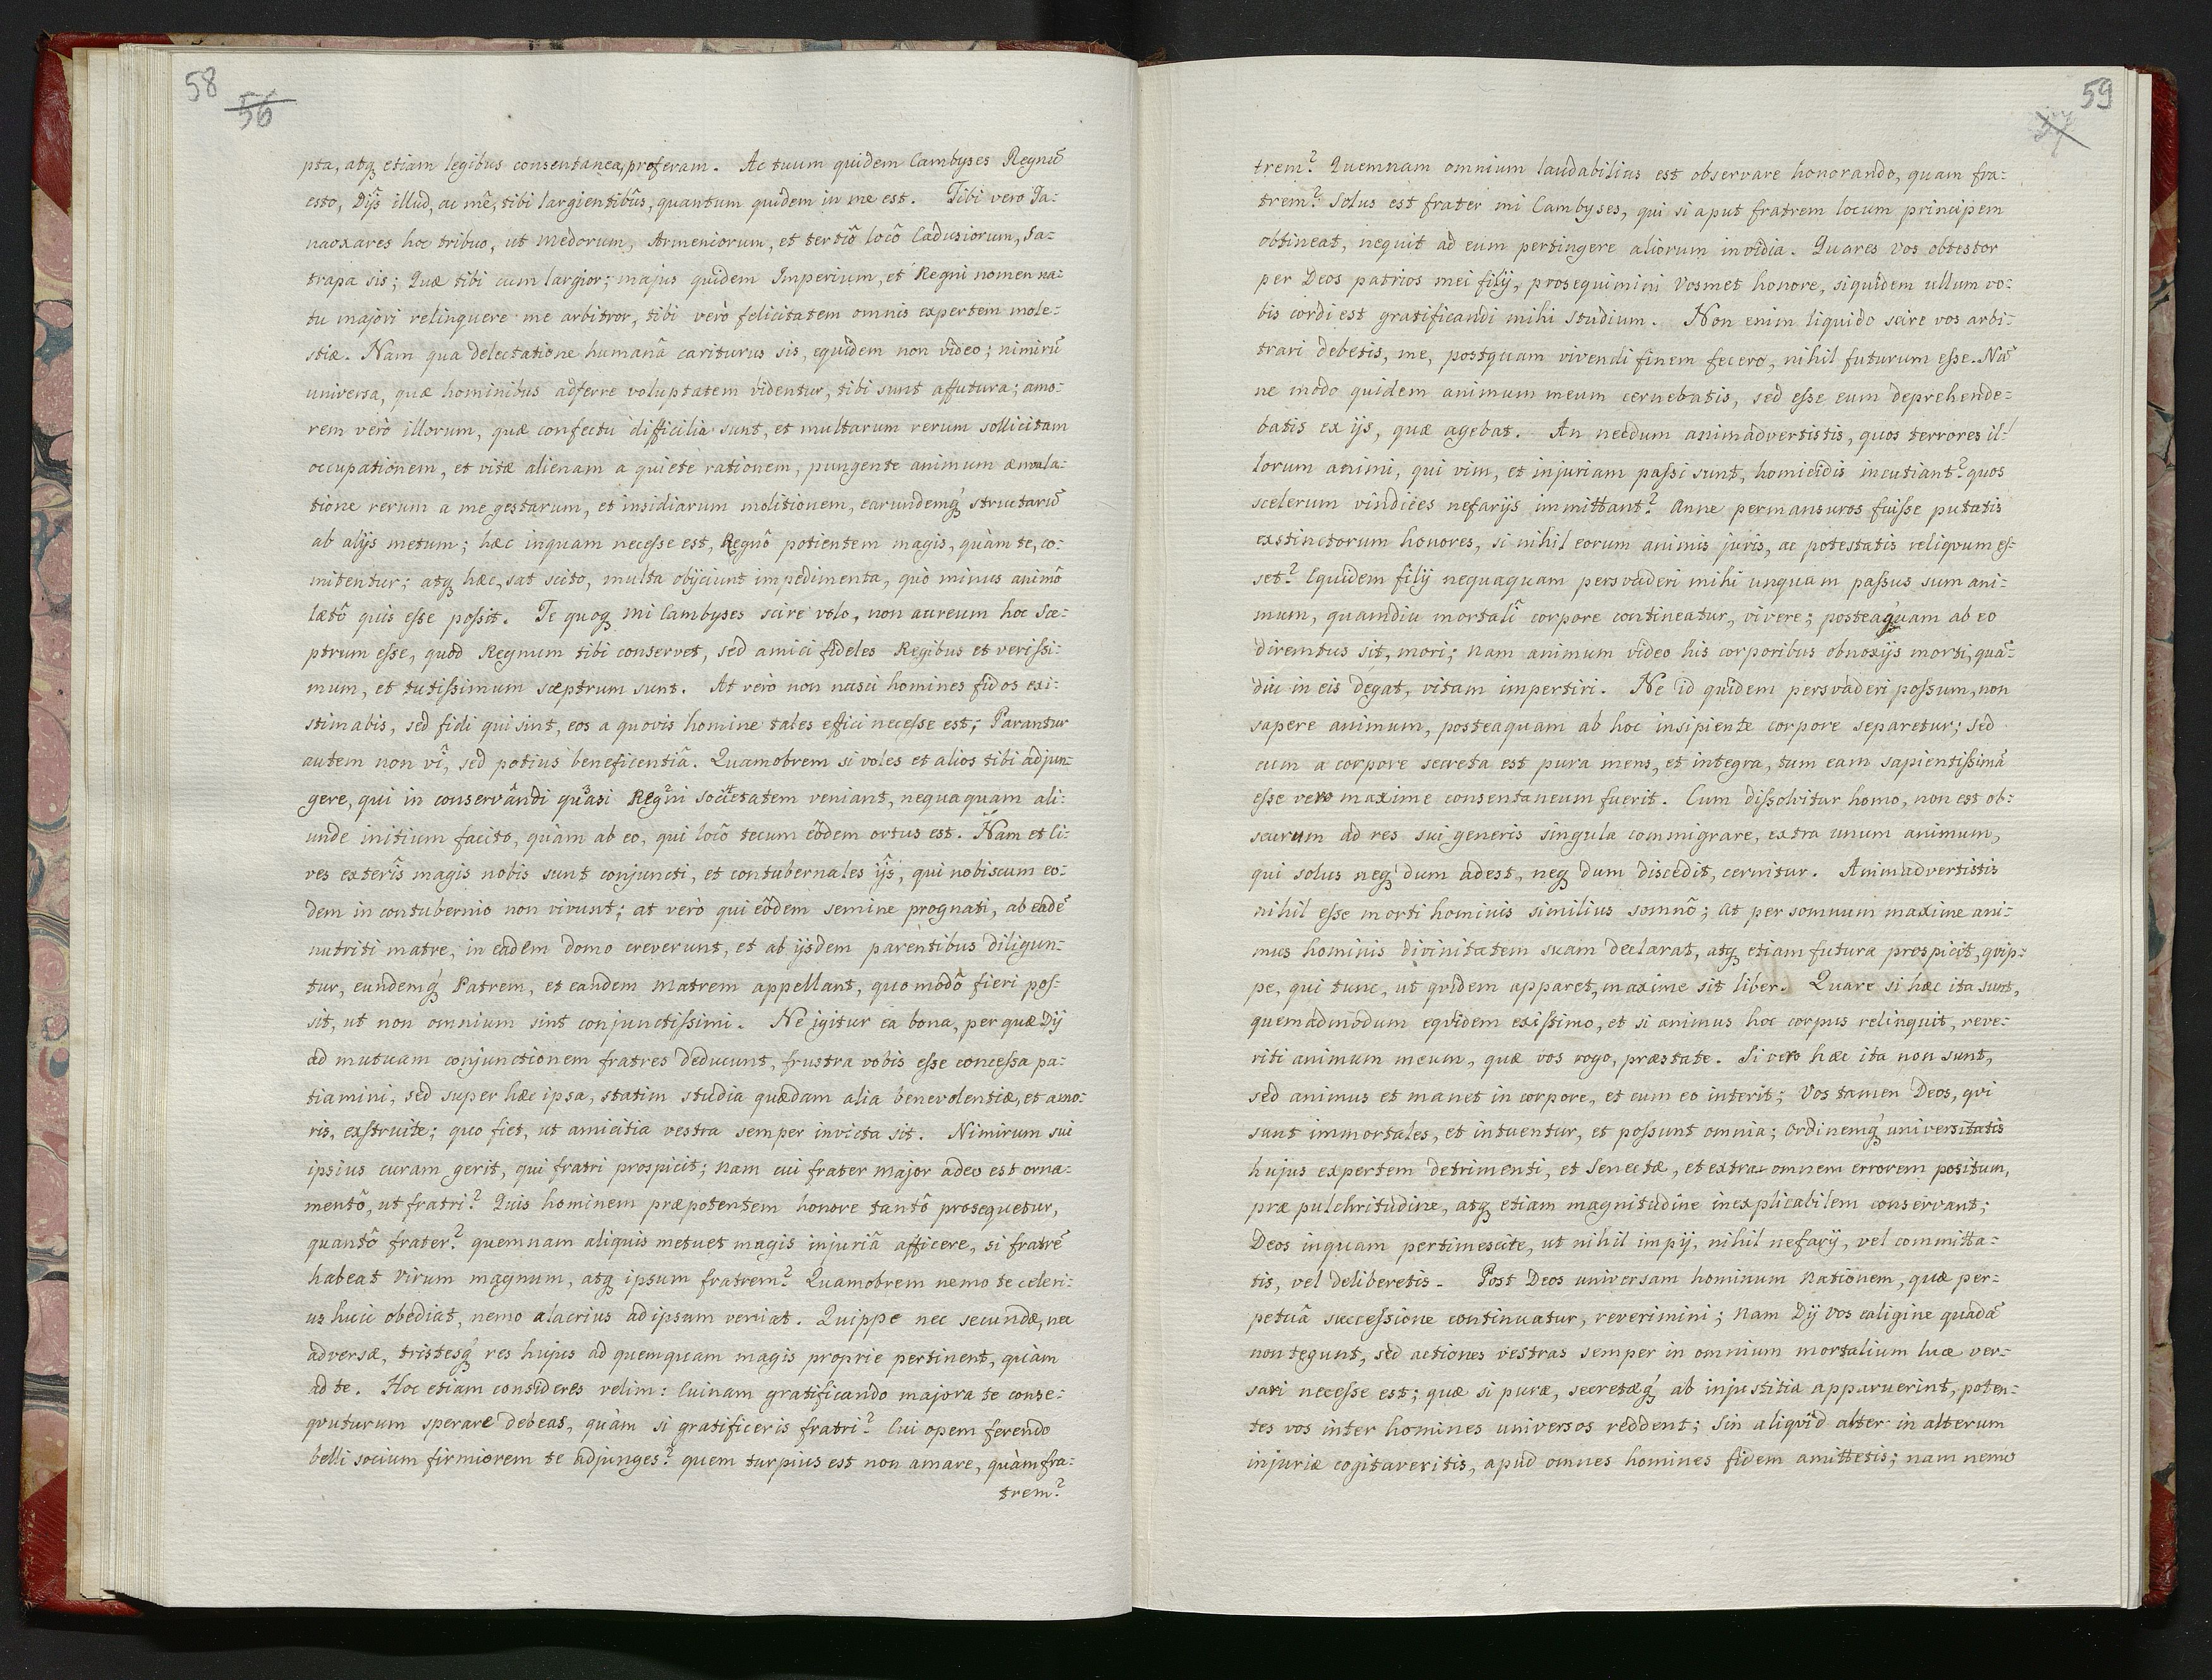 58
56
pta, atq́ etiam legibus consentanea, proferam. Ac tuum quidem Cambyses Regnũ
esto, Dijs illud, ac mẽ, tibi largientibûs, quantum quidem in me est. Tibi vero Ta=
naoxares hoc tribuo, ut Medorum, Armeniorum, et tertiô locô Cadusiorum, Sa=
trapa sis; Quæ tibi cum largior; majus quidem Imperium, et Regni nomen na=
tu majori relinquere me arbitror, tibi verò felicitatem omnis expertem mole=
stiæ. Nam qua delectatione humanâ cariturus sis, equidem non video; nimirũ
universa, quæ hominibus adferre voluptatem videntur, tibi sunt affutura; amo=
rem verò illorum, quæ confectu difficilia sunt, et multarum rerum sollicitam
occupationem, et vitæ alienam a quiete rationem, pungente animum æmula=
tione rerum a me gestarum, et insidiarum molitionem, earundemq́ structarũ
ab alijs metum; hæc inquam necesse est, Regnô potientem magis, quàm te, co=
mitentur; atq́ hæc, sat scito, multa obijciunt impedimenta, quò minus animô
lætô quis esse possit. Te quoq́ mi Cambyses scire volo, non aureum hoc Sce=
ptrum esse, quod Regnum tibi conservet, sed amici fideles Regibus et verissi=
mum, et tutissimum sceptrum sunt. At verò non nasci homines fidos exi=
stimabis, sed fidi qui sint, eos a quovis homine tales effici necesse est; Parantur
autem non vî, sed potius beneficentiâ. Quamobrem si voles et alios tibi adjun=
gere, qui in conservândi qu3asi Reg2ni soc4ietatem veniant, nequaquam ali=
unde initium facito, quàm ab eo, qui locô tecum eôdem ortus est. Nam et Ci=
ves exterîs magis nobis sunt conjuncti, et contubernales ijs, qui nobiscum eo=
dem in contubernio non vivunt; at verò qui eôdem semine prognati, ab eadẽ
nutriti matre, in eadem domo creverunt, et ab ijsdem parentibus diligun=
tur, eundemq́ Patrem, et eandem Matrem appellant, quo modô fieri pos=
sit, ut non omnium sint conjunctissimi. Ne igitur ea bona, per quæ Dij
ad mutuam conjunctionem fratres deducunt, frustra vobis esse concessa pa=
tiamini, sed super hæc ipsa, statim studia quædam alia benevolentiæ, et amo=
ris, exstruite; quo fiet, ut amicitia vestra semper invicta sit. Nimirum sui
ipsius curam gerit, qui fratri prospicit; nam cui frater major adeo est orna=
mentô, ut fratri? Quis hominem præpotentem honore tantô prosequetur,
quantô frater? quemnam aliquis metuet magis injuriâ afficere, si fratrẽ
habeat virum magnum, atq́ ipsum fratrem? Quamobrem nemo te celeri=
us huic obediat, nemo alacrius ad ipsum veniat. Quippe nec secundæ, nec
adversæ, tristesq́ res hujus ad quemquam magis proprie pertinent, quàm
ad te. Hoc etiam consideres velim: Cuinam gratificando majora te conse=
qvuturum sperare debeas, quàm si gratificeris fratri? Cui opem ferendo
belli socium firmiorem te adjunges? quem turpius est non amare, quàm fra=
trem?
59
57
trem? Quemnam omnium laudabilius est observare honorando, quam fra=
trem? Solus est frater mi Cambyses, qui si aput fratrem locum principem
obtineat, nequit ad eum pertingere aliorum invidia. Quares vos obtestor
per Deos patrios mei filij, prosequimini Vosmet honore, siquidem ullum vo=
bis cordi est gratificandi mihi studium. Non enim liquido scire vos arbi=
trari debetis, me, postquam vivendi finem fecero, nihil futurum esse. Nã
ne modo quidem animum meum cernebatis, sed esse eum deprehende=
batis ex ijs, quæ agebat. An necdum animadvertistis, quos terrores il=
lorum animi, qui vim, et injuriam passi sunt, homicidis incutiant? quos
scelerum vindices nefarijs immittant? Anne permansuros fuisse putatis
exstinctorum honores, si nihil eorum animis juris, ac potestatis reliqvum es=
set? Equidem filij nequaquam persvaderi mihi unquam passus sum ani=
mum, quamdiu mortalî corpore contineatur, vivere; posteaquam ab eo
diremtus sit, mori; nam animum video his corporibus obnoxijs morti, quã=
diu in eis degat, vitam impertiri. Ne id quidem persvaderi possum, non
sapere animum, posteaquam ab hoc insipiente corpore separetur; sed
cum a corpore secreta est pura mens, et integra, tum eam sapientissimã
esse vero maxime consentaneum fuerit. Cum dissolvitur homo, non est ob=
scurum ad res sui generis singula commigrare, extra unum animum,
qui solus neq́ dum adest, neq́ dum discedit, cernitur. Animadvertistis
nihil esse morti hominis similius somnô; at per somnum maxime ani=
mus hominis divinitatem suam declarat, atq́ etiam futura prospicit, qvip=
pe, qui tunc, ut qvidem apparet, maxime sit liber. Quare si hæc ita sunt,
quemadmodum eqvidem existimo, et si animus hoc corpus relinquit, reve=
riti animum meum, quæ vos rogo, præstate. Si vero hæc ita non sunt,
sed animus et manet in corpore, et cum eo interit; Vos tamen Deos, qvi
sunt immortales, et intuentur, et possunt omnia; Ordinemq́ universitatis
hujus expertem detrimenti, et Senectæ, et extra omnem errorem positum,
præ pulchritudine, atq́ etiam magnitudine inexplicabilem conservant;
Deos inquam pertimescite, ut nihil impij, nihil nefarij, vel committa=
tis, vel deliberetis. Post Deos universam hominum Nationem, quæ per=
petuâ successione continuatur, reverimini; Nam Dij vos caligine quadã
non tegunt, sed actiones vestras semper in omnium mortalium luce ver=
sari necesse est; quæ si puræ, secretæq́ ab injustitia apparuerint, poten=
tes vos inter homines universos reddent; Sin aliqvid alter in alterum
injuriæ cogitaveritis, apud omnes homines fidem amittetis; nam nemo